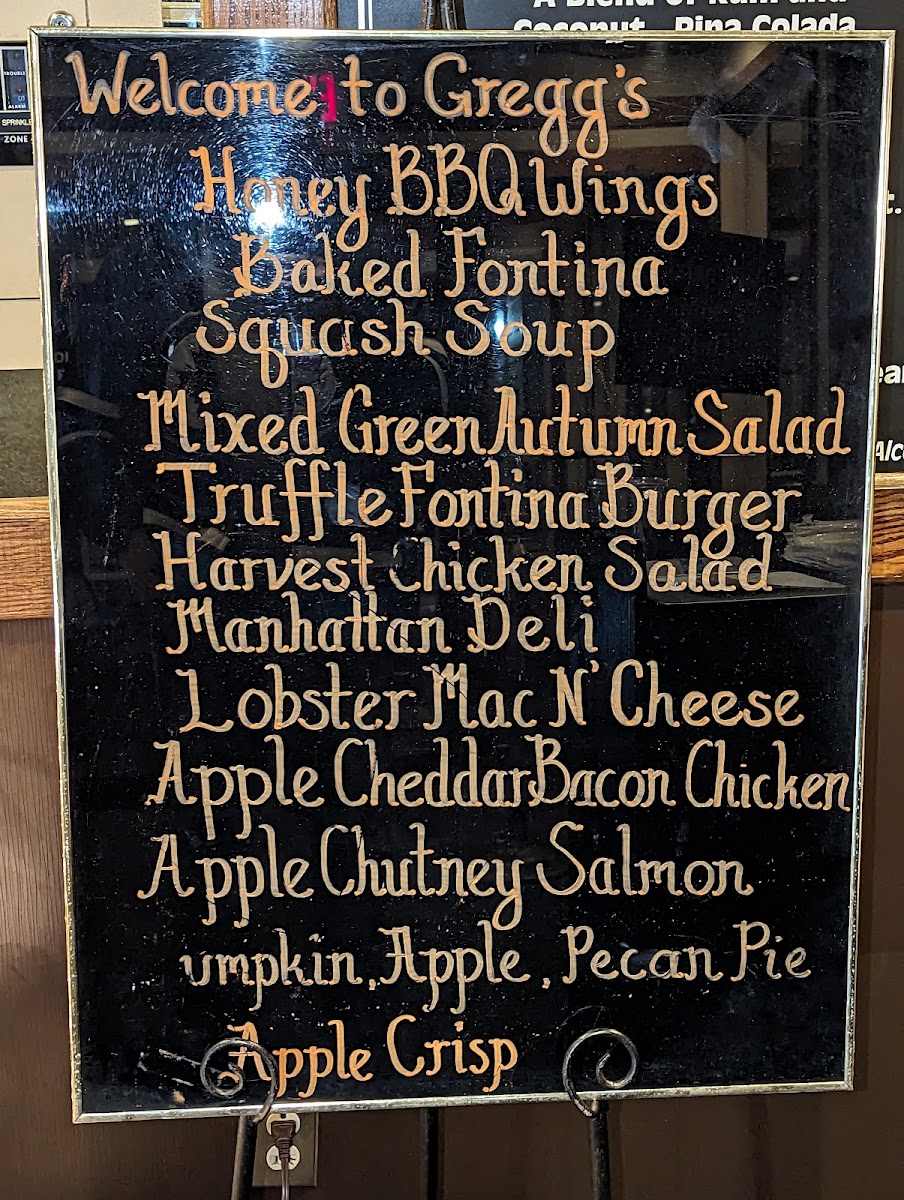 A Blend of Rum and
Coconut Pina Colada
TROUBLE
ALARM
SPRINKLE
ZONE
Welcome to Gregg's
Honey BBQ Wings
Baked Fontina
Squash Soup
Mixed Green Autumn Salad
Truffle Fontina Burger
Harvest Chicken Salad
Manhattan Deli
Lobster Mac N' Cheese
Apple Cheddar Bacon Chicken
Apple Chutney Salmon
umpkin, Apple, Pecan Pie
Apple Crisp